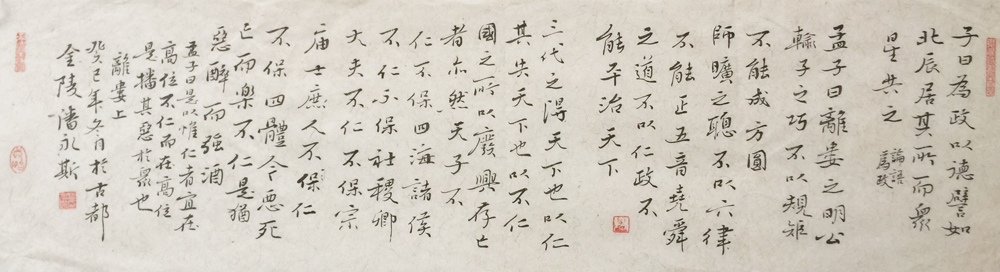 子曰為政以德譬如
北辰居其所而眾
星共之
論語
為政
孟子曰離婁之明公
輸子之巧不以規矩
不能成方圓
師曠之聰不以六律
不能正五音堯舜
之道不以仁政不
能平治天下
三代之得天下也以仁
其失天下也以不仁
國之所以廢興存亡
者亦然天子不
仁不保四海諸侯
不仁不保社稷卿
大夫不仁不保宗
庙士庶人不保仁
不保四體今惡死
亡而樂不仁是猶
惡醉而強酒
孟子曰是以惟仁者宜在
高位不仁而在高位
是播其惡於眾也
離婁上
癸巳年冬月於古都
金陵潘永斯